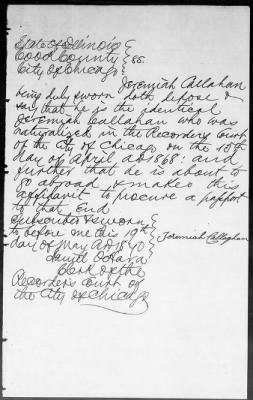 State of Illinois }
Cook County } ss.
City of Chicago }
Jeremiah Callahan
being duly sworn doth depose &
say that he is the identical
Jeremiah Callahan who was
naturalized in the Recorders Court
of the City of Chicago on the 15th
day of April AD 1868: and
further that he is about to
go abroad & makes this
affidavit to procure a passport
to that End
Subscribed & sworn }
to before me this 19th }
day of May AD 1870 }
Jeremiah Callaghan
Daniel O'Hara
Clerk of the
Recorder's Court of
the City of Chicago